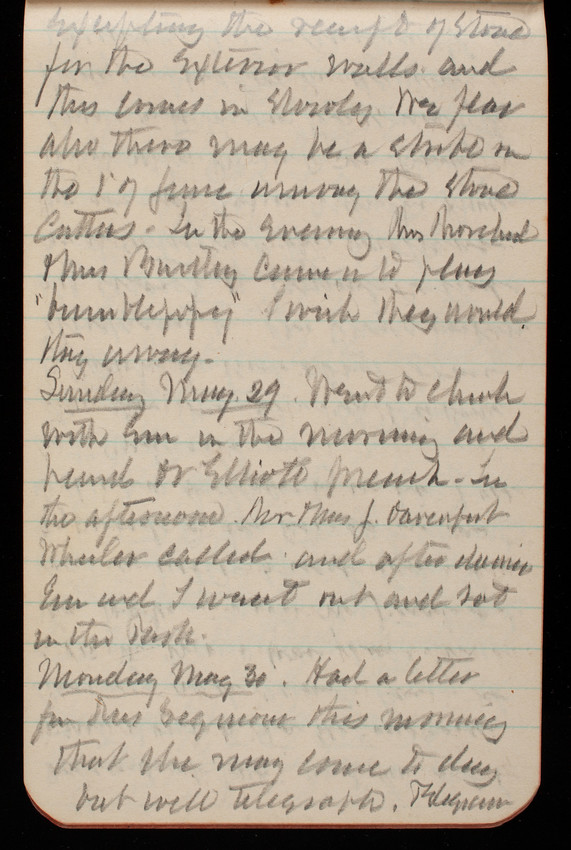 Excepting the receipt of Stone
for the Exterior walls and
this comes in slowly. We fear
also there may be a strike on
the 1st of June among the Stone
Cutters - In the Evening Mrs
& Mrs came in to play
"bumblepopy" I wish they would
stay away.
Sunday May 29. Went to church
with Em in the morning and
heard Dr Elliott preach - In
the afternoon Mr Mrs J. Davenport
Wheeler called and after dinner
Em and I went out and sat
in the Park.
Monday May 30. Had a letter
from this morning
that she may come to day
but will telegraph. Telegram